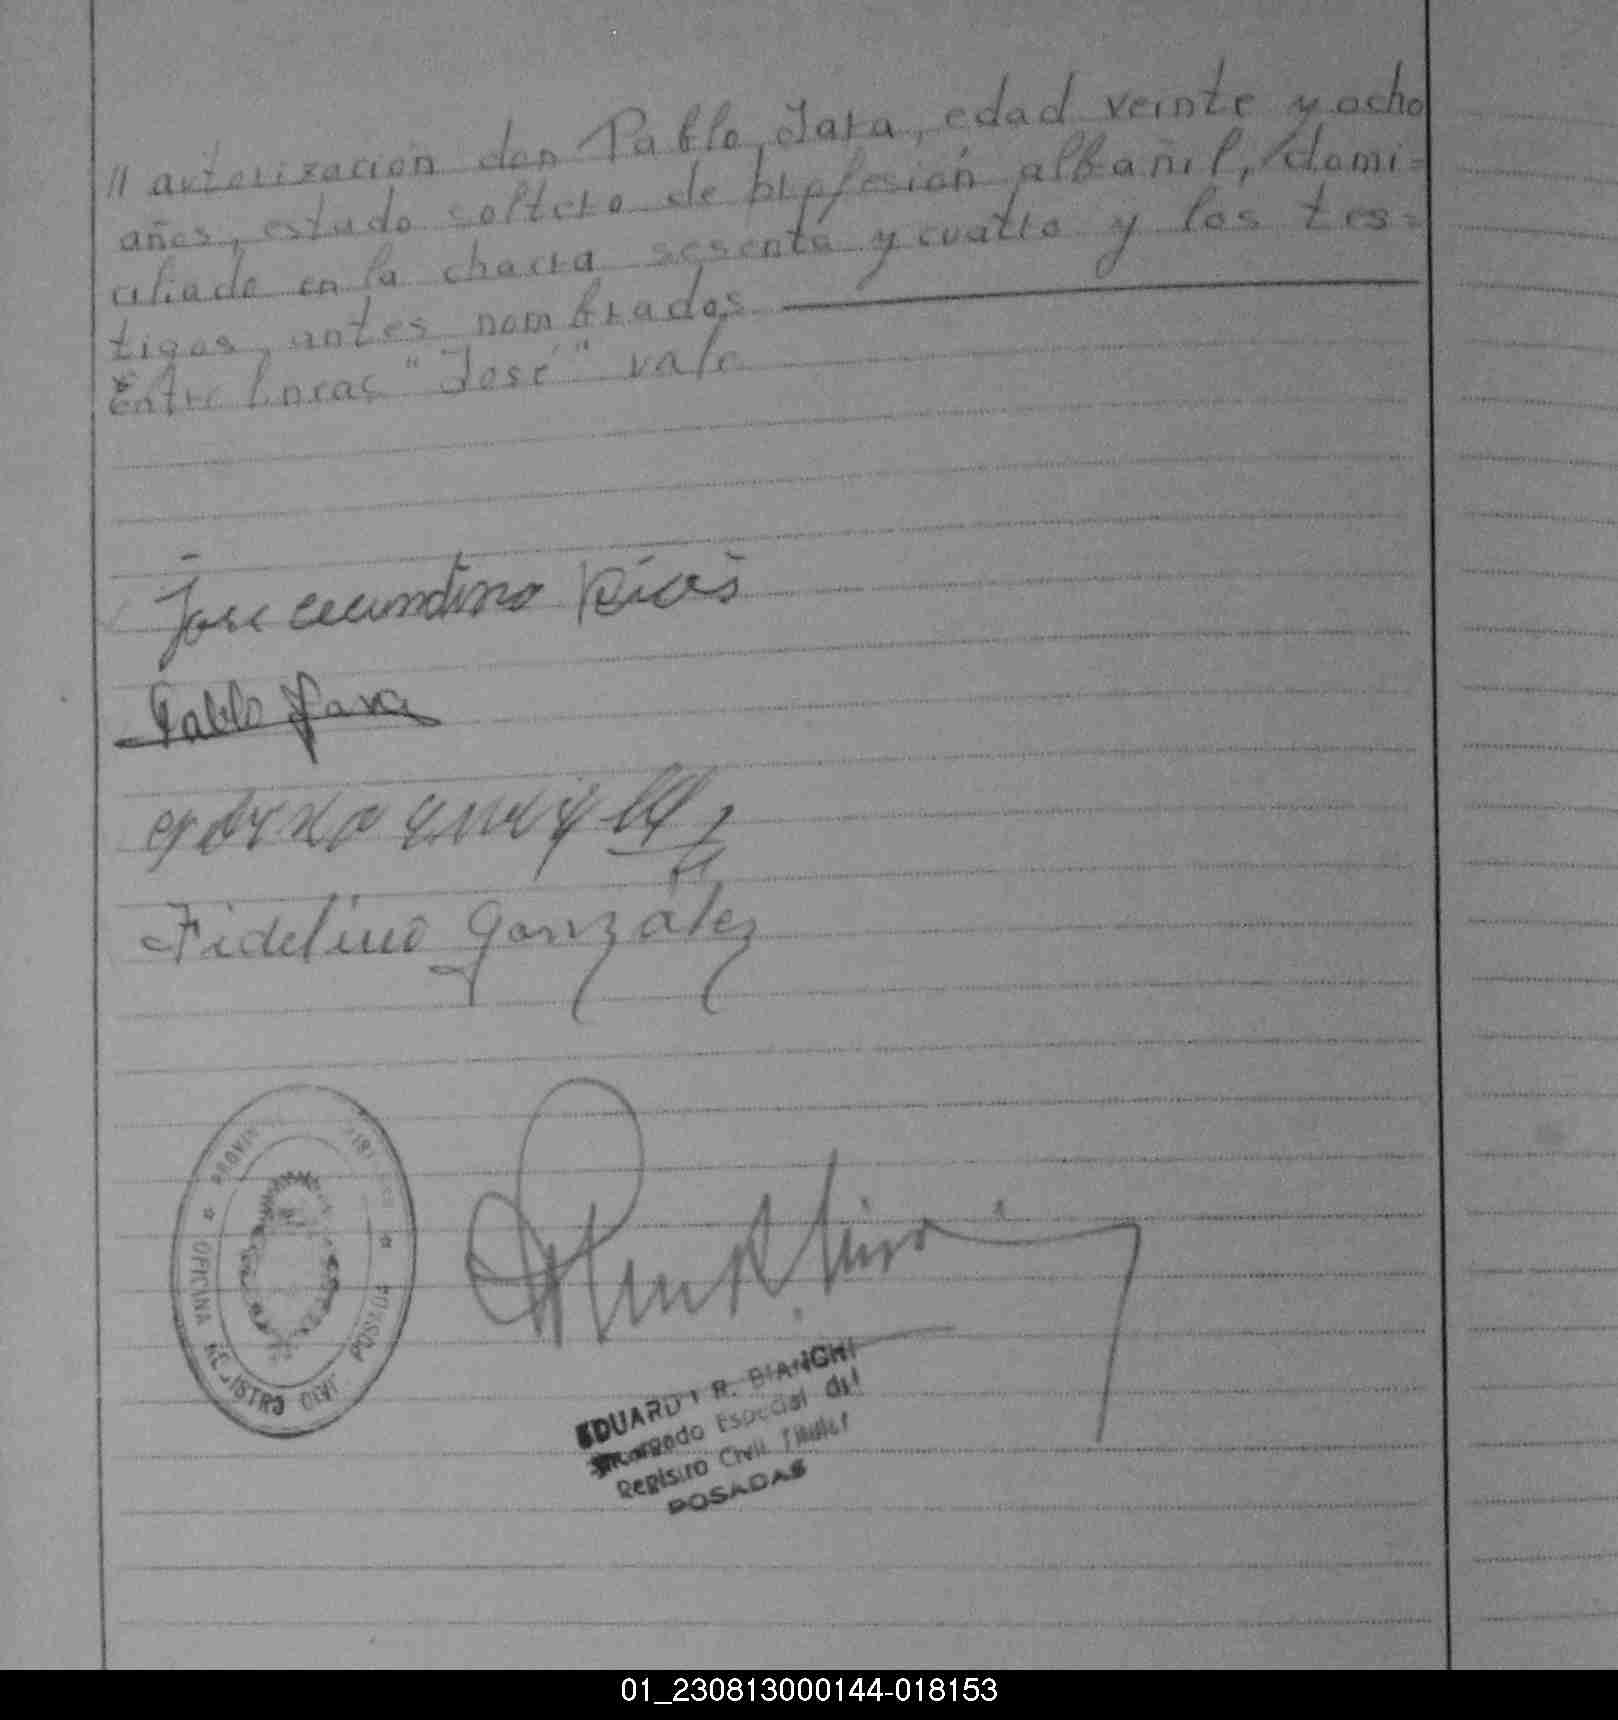 // autorización don Pablo Jara, edad veinte y ocho
años, estado soltero de profesión albañil, domi=
ciliado en la chacra sesenta y cuatro y los tes=
tigos, antes nombrados
Entre lineas "José" vale
Jose cecundino Rios
Pablo Jara
Fidelino González
PROVIN
OFICINA REGISTRO CIVI POSADA
EDUARDO R. BIANCHI
Encargado Especial del
Registro Civil Titular
POSADAS
01_230813000144-018153